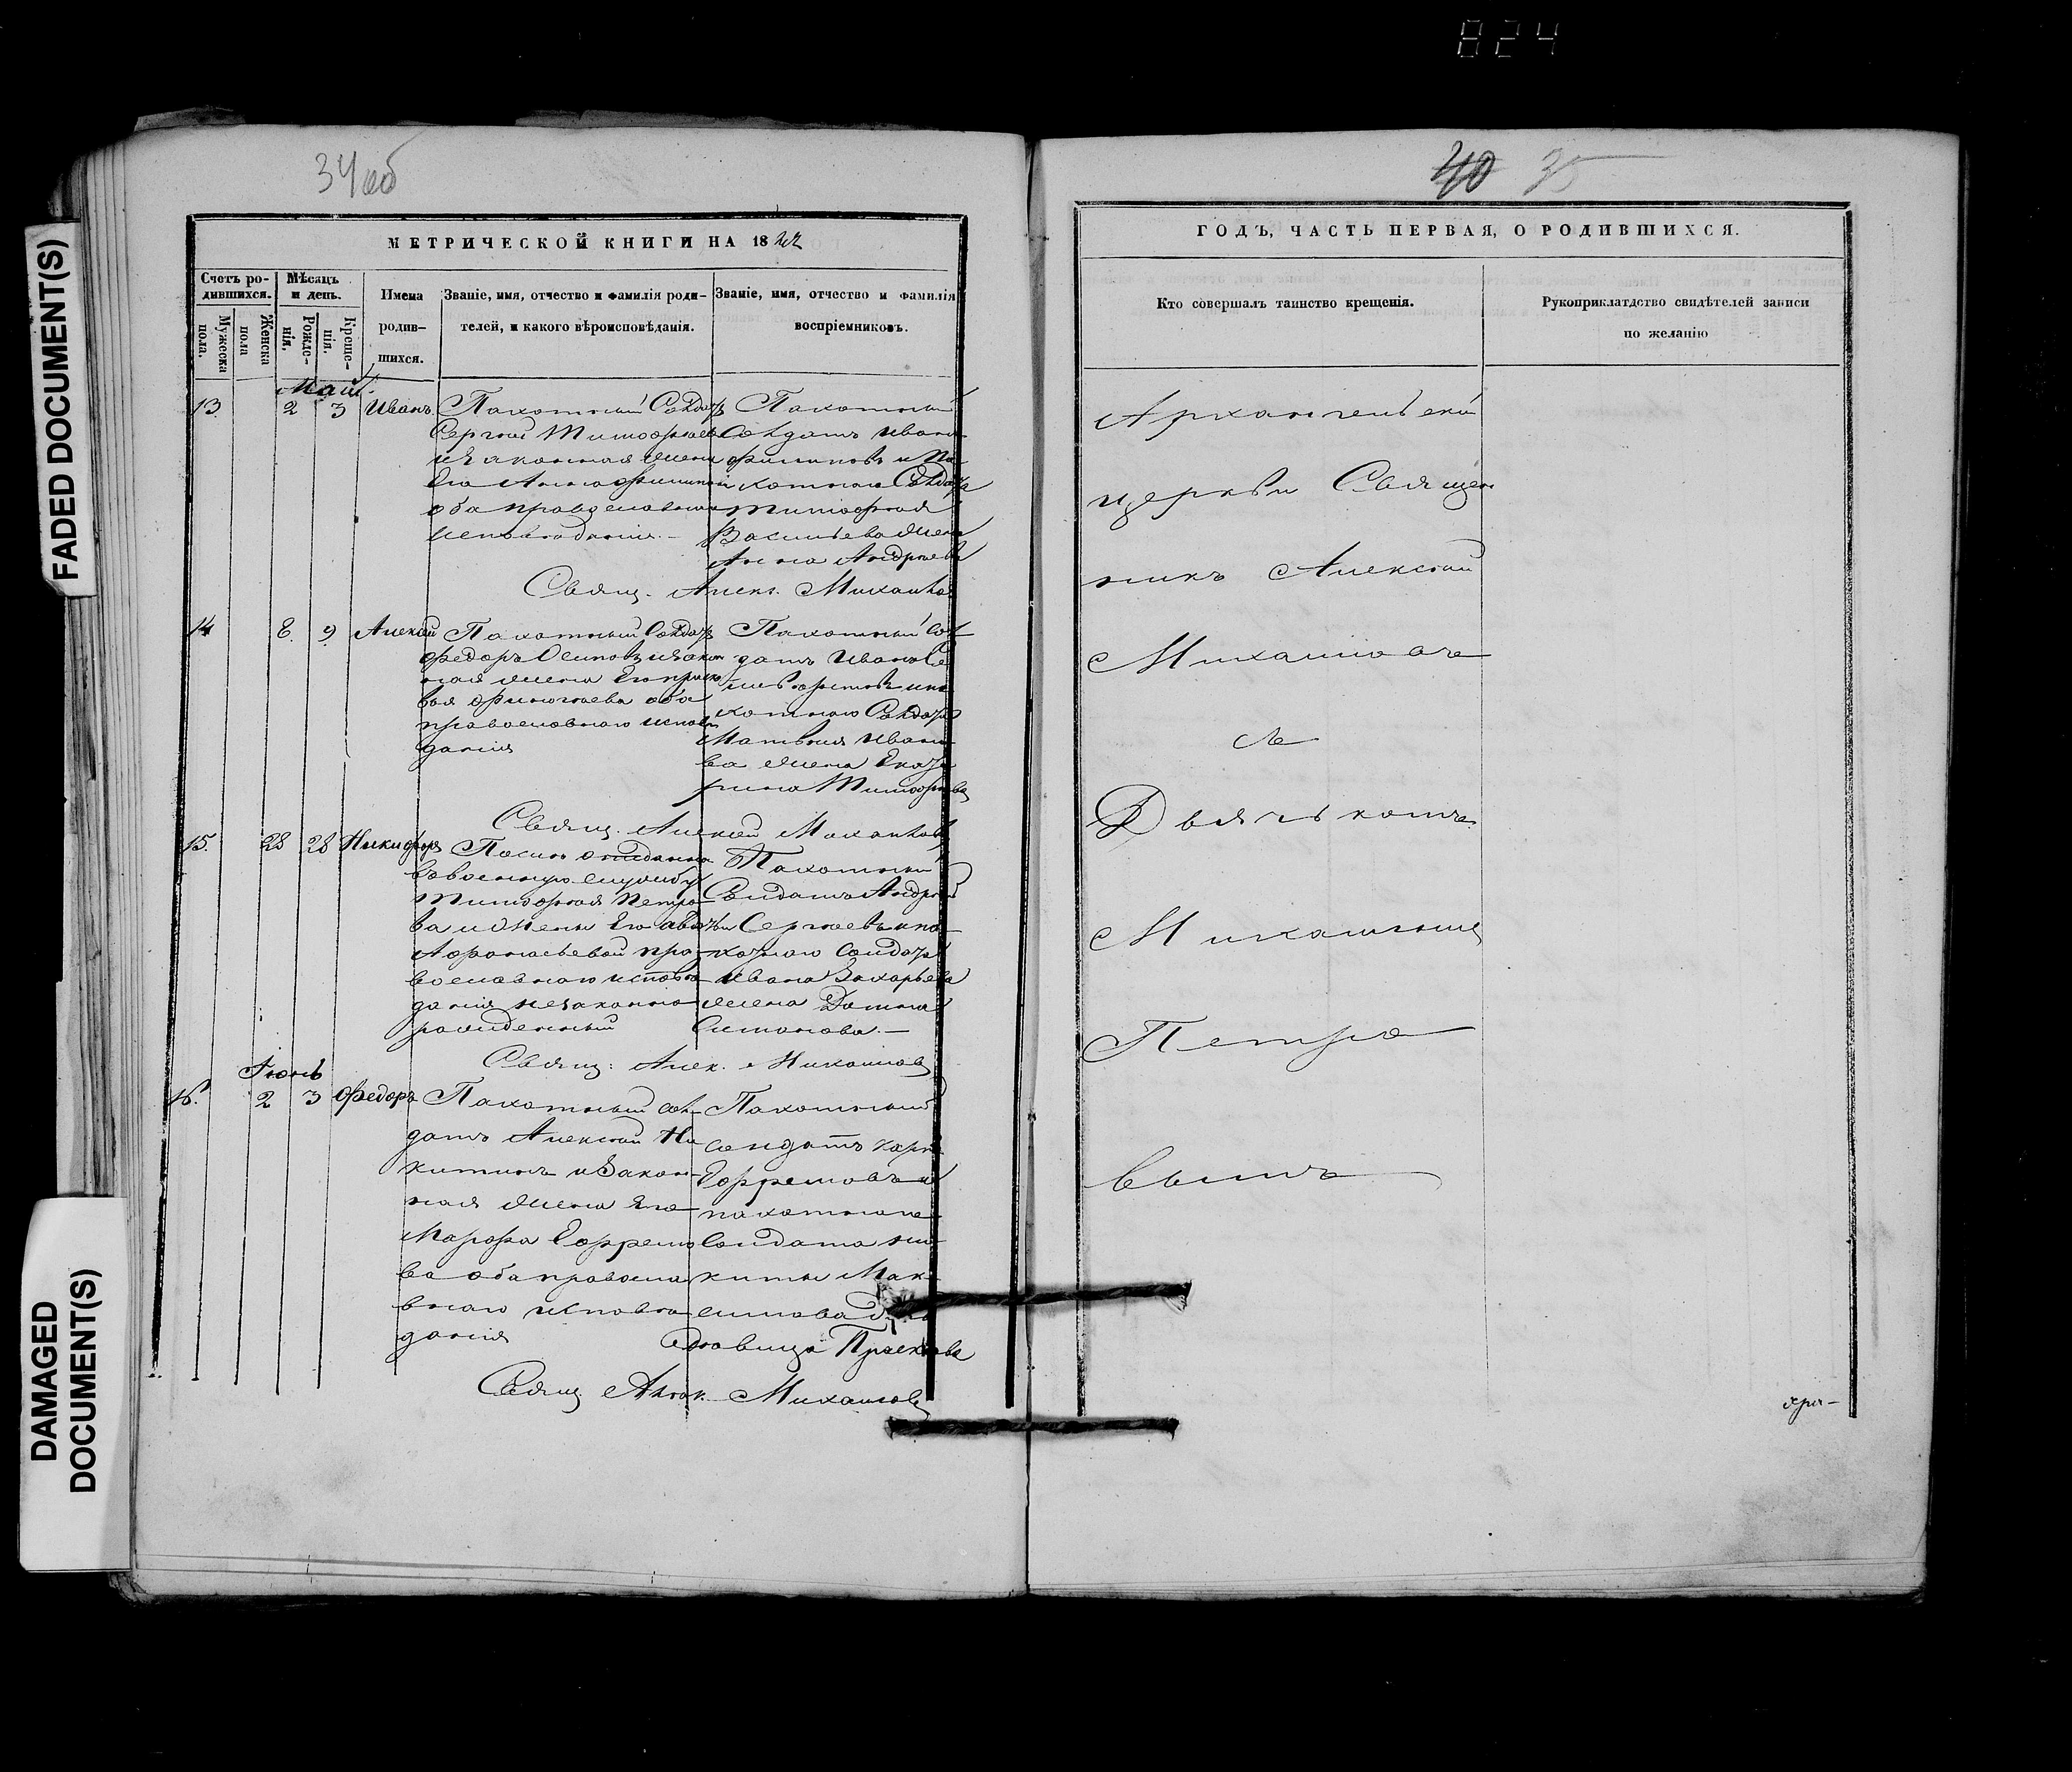 824
FADED DOCUMENT(S)
DAMAGED
DOCUMENT(S)
34 об
МЕТРИЧЕСКОЙ КНИГИ НА 18
Счетъ ро-
дившихся.
Мѣсяцъ
и день.
Мужеска
пола.
Женска
пола
Рожде-
нія.
Креще-
нія.
Имена
родив-
шихся.
Званіе, имя, отчество и фамилія роди-
телей, и какого вѣроисповѣданія.
Званіе, имя, отчество и фамилія
воспріемниковъ.
Май
13.
2
3
Иванъ
Пахотный Солдатъ
Сергей Тимофѣевъ
и законная жена
Его Анна Филипова
оба православнаго
исповѣданія.
Пахотный
Солдатъ Иванъ
Филиповъ и Па
хотнаго Солдата
Тимофея
Васильева жена
Анна Андреева
Свящ. Алекс. Михайловъ
14
8.
9
Алексей
Пахотный Солдатъ
Федоръ Осиповъ и закон
ная жена Его Праско
вья
православнаго исповѣ
данія
Пахотный Сол
датъ Иванъ
хотнаго Солдата
Матвея Ивано
ва жена Екате
рина Тимофеева
Свящ. Алексей Михайловъ
15.
28
28
Никифоръ
отиданна
въ военную службу
Тимофея Петро
ва и жены Его
Афонасьевой пра
вославнаго исповѣ
данія незаконно
рожденный
Пахотный
Солдатъ Андрей
Сергеевъ и па
хотнаго Солдата
Ивана Захарьева
жена
Симонова.
Свящ. Алек. Михайловъ
Іюнь
16.
2
3
Федоръ
Пахотный сол-
датъ Алексей Ни
китинъ и Закон-
ная жена Его
Марфа Ефремо
ва оба правосла
внаго исповѣ
данія
Пахотный
солдатъ
Ефремовъ и
пахотнаго
Солдата Ни
киты Мак-
симова
девица
Свящ. Алек. Михайловъ
40 35
ГОДЪ, ЧАСТЬ ПЕРВАЯ, О РОДИВШИХСЯ.
Кто совершалъ таинство крещенія.
Рукоприклатдство свидѣтелей записи
по желанію
Архангельской
церкви Священ
никъ Алексей
Михайловъ
съ
Дьячькомъ
Михаиломъ
Петро
вымъ